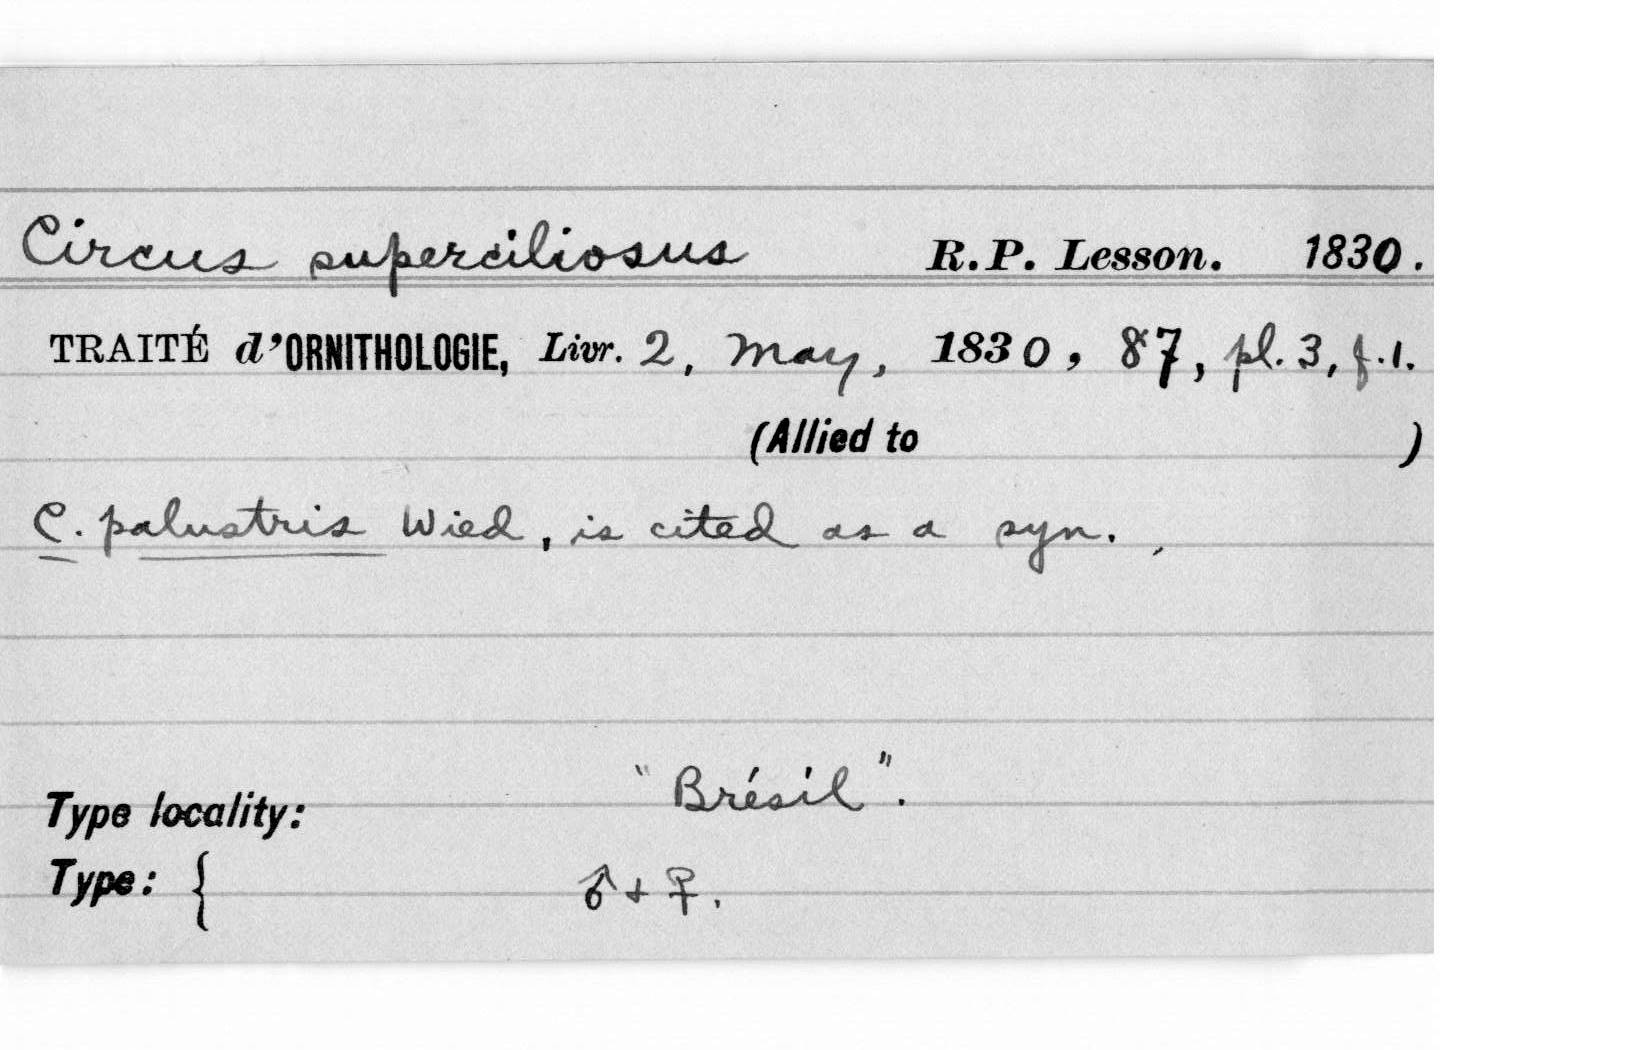 Circus superciliosus R.P. Lesson. 1830.
TRAITÉ d'ORNITHOLOGIE, Livr. 2, May, 1830, 87, pl. 3, f. 1.
(Allied to )
C. palustris Wied, is cited as a syn.
Type locality: "Brésil".
Type: { ♂ + ♀.